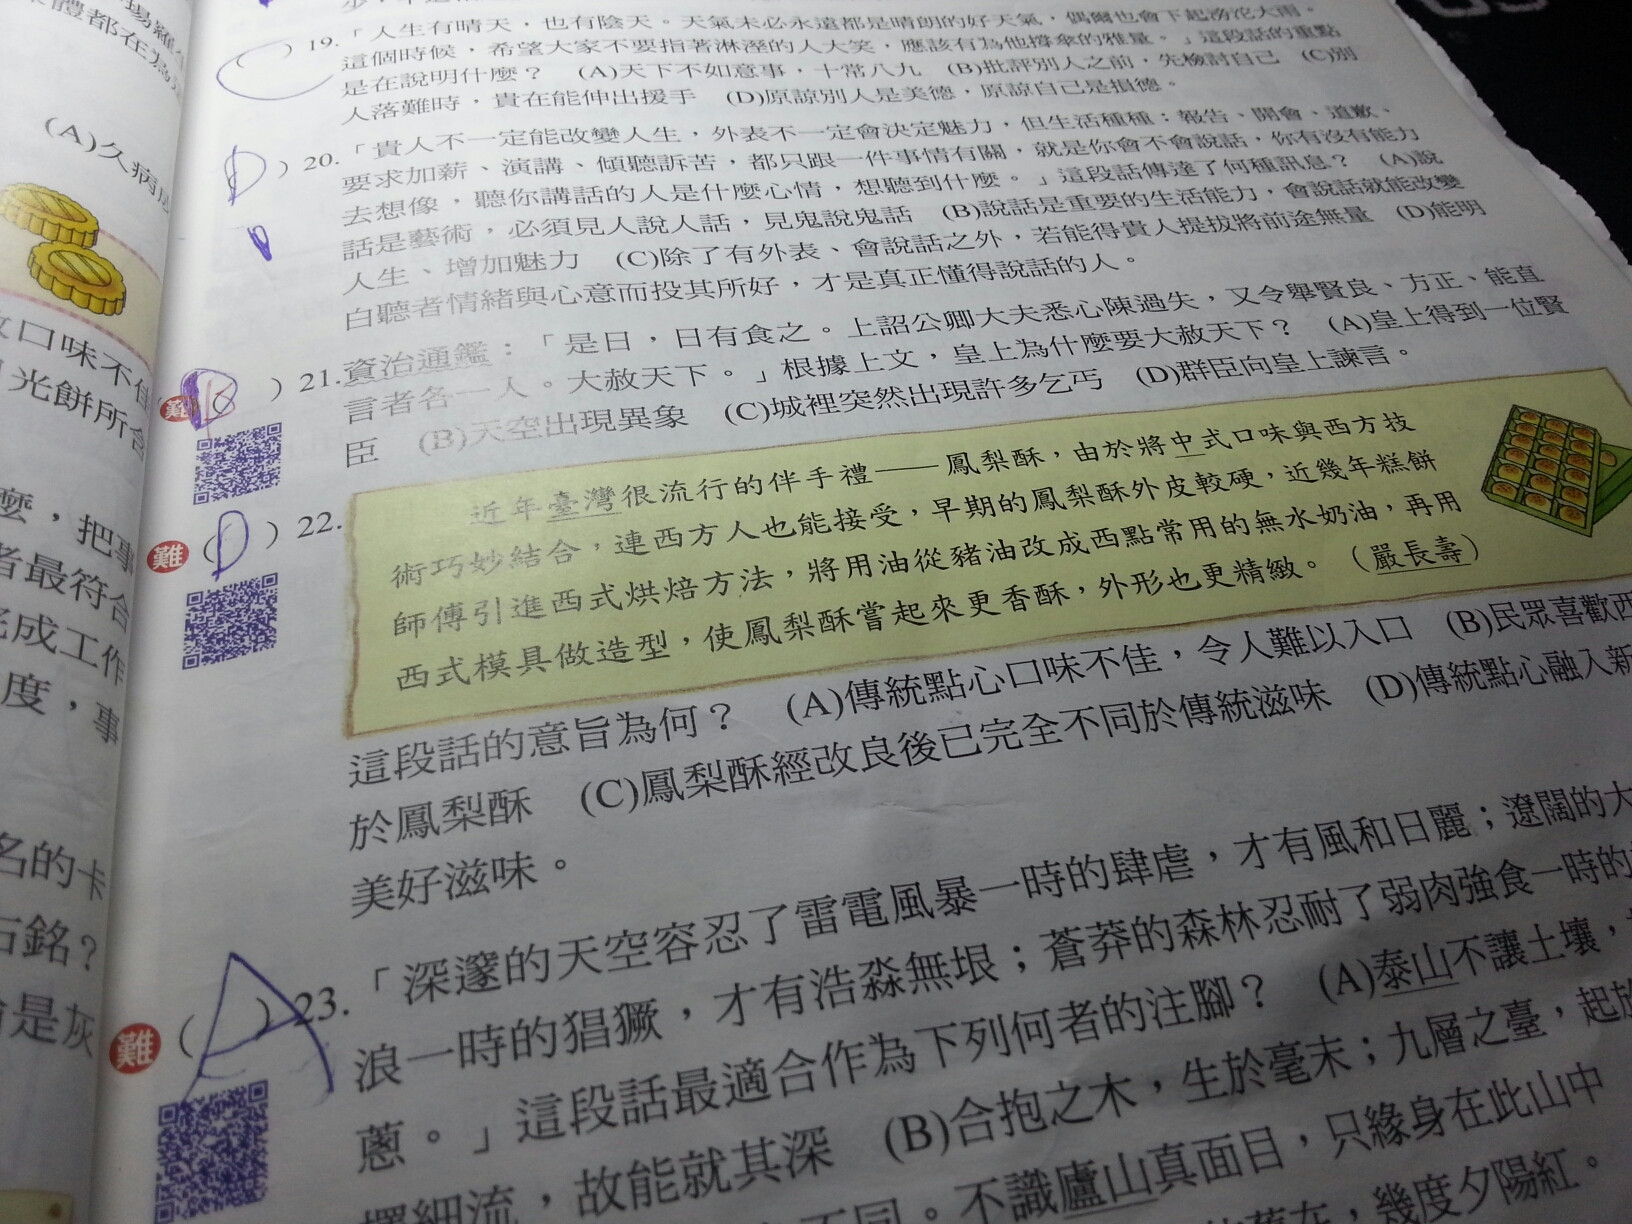 (A)久病
口味不佳
光餅所含
麼，把事
者最符合
成工作
度，事
名的卡
石銘？
是灰
( C ) 19.「人生有晴天，也有陰天。天氣未必永遠都是晴朗的好天氣，偶爾也會下起滂沱大雨。
這個時候，希望大家不要指著淋溼的人大笑，應該有為他撐傘的雅量。」這段話的重點
是在說明什麼？ (A)天下不如意事，十常八九 (B)批評別人之前，先檢討自己 (C)別
人落難時，貴在能伸出援手 (D)原諒別人是美德，原諒自己是損德。
( D ) 20.「貴人不一定能改變人生，外表不一定會決定魅力，但生活種種：報告、開會、道歉、
要求加薪、演講、傾聽訴苦，都只跟一件事情有關，就是你會不會說話，你有沒有能力
去想像，聽你講話的人是什麼心情，想聽到什麼。」這段話傳達了何種訊息？ (A)說
話是藝術，必須見人說人話，見鬼說鬼話 (B)說話是重要的生活能力，會說話就能改變
人生、增加魅力 (C)除了有外表、會說話之外，若能得貴人提拔將前途無量 (D)能明
白聽者情緒與心意而投其所好，才是真正懂得說話的人。
難 ) 21.資治通鑑：「是日，日有食之。上詔公卿大夫悉心陳過失，又令舉賢良、方正、能直
言者各一人。大赦天下。」根據上文，皇上為什麼要大赦天下？ (A)皇上得到一位賢
臣 (B)天空出現異象 (C)城裡突然出現許多乞丐 (D)群臣向皇上諫言。
難 ( D ) 22.
近年臺灣很流行的伴手禮——鳳梨酥，由於將中式口味與西方技
術巧妙結合，連西方人也能接受，早期的鳳梨酥外皮較硬，近幾年糕餅
師傅引進西式烘焙方法，將用油從豬油改成西點常用的無水奶油，再用
西式模具做造型，使鳳梨酥嘗起來更香酥，外形也更精緻。（嚴長壽）
這段話的意旨為何？ (A)傳統點心口味不佳，令人難以入口 (B)民眾喜歡西
於鳳梨酥 (C)鳳梨酥經改良後已完全不同於傳統滋味 (D)傳統點心融入新
美好滋味。
難 ( A ) 23.「深邃的天空容忍了雷電風暴一時的肆虐，才有風和日麗；遼闊的大
浪一時的猖獗，才有浩淼無垠；蒼莽的森林忍耐了弱肉強食一時的
蔥。」這段話最適合作為下列何者的注腳？ (A)泰山不讓土壤，
擇細流，故能就其深 (B)合抱之木，生於毫末；九層之臺，起於
不同。不識廬山真面目，只緣身在此山中
在，幾度夕陽紅。